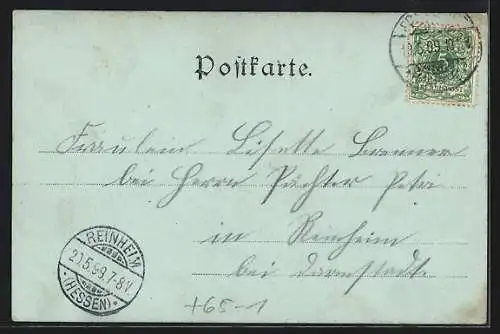 Postkarte.
Fräulein Lisette Brenner
bei Herrn Pächter Petri
in Reinheim
bei Darmstadt
REINHEIM
21.5.99.7-8V.
(HESSEN)
+65-1